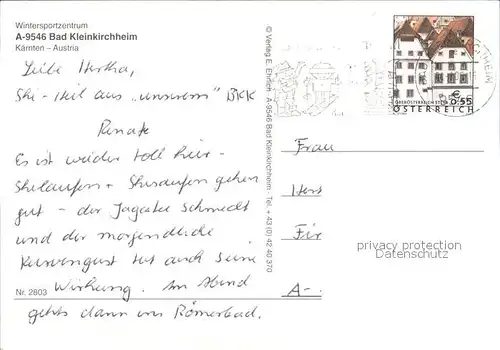 Wintersportzentrum
A-9546 Bad Kleinkirchheim
Kärnten – Austria
Liebe Hertha,
Ski-Heil aus „unserem" BKK
Renate
Es ist wieder toll hier -
Skilaufen + gehen
gut - der Jagatee schmeckt
und der morgendliche
tut auch seine
Wirkung. Am Abend
gehts dann ins Römerbad.
Nr. 2803
© Verlag E. Ehrlich A-9546 Bad Kleinkirchheim - Tel. + 43 (0) 42 40 370
€ 0,55
ÖSTERREICH
Frau
A-
privacy protection
Datenschutz